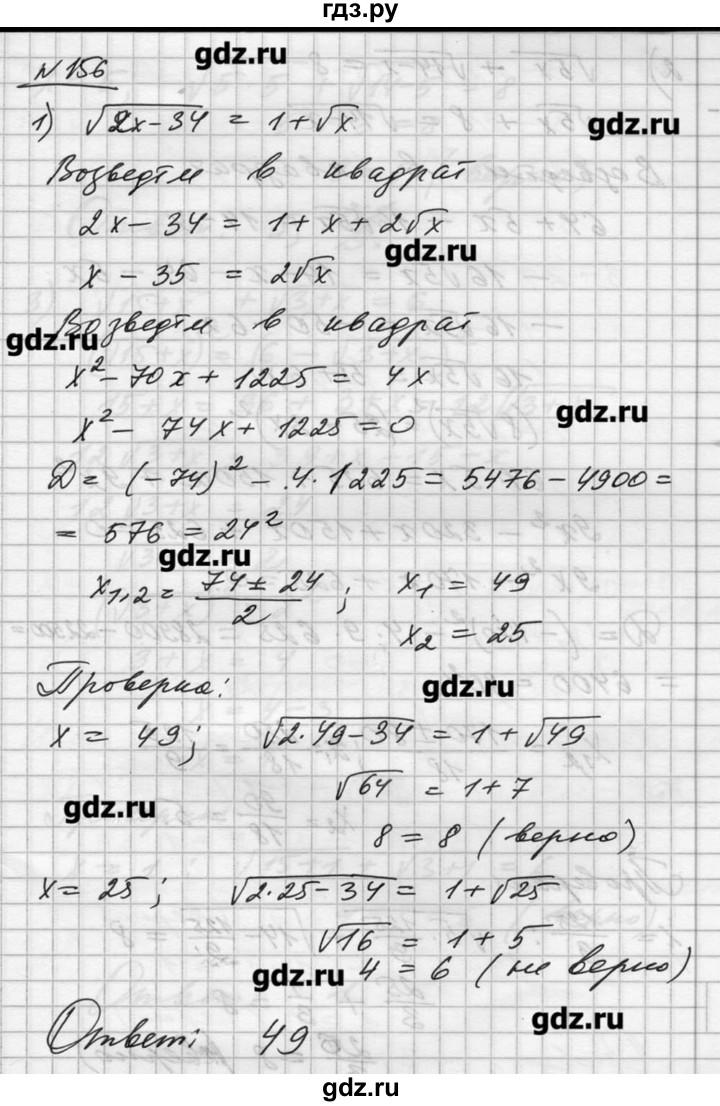 гдз.ру
gdz.ru
N 156
1) √(2x-34) = 1+√x
gdz.ru
Возведём в квадрат
2x-34 = 1+x+2√x
gdz.ru
x - 35 = 2√x
Возведём в квадрат
gdz.ru
x²-70x+1225 = 4x
gdz.ru
x²- 74x+1225=0
D= (-74)² - 4·1225 = 5476-4900=
= 576 = 24²
gdz.ru
x₁,₂= (74±24)/2 ; x₁ = 49
x₂ = 25
Проверка:
gdz.ru
x = 49; √(2·49-34) = 1+√49
√64 = 1+7
gdz.ru
8 = 8 (верно)
x= 25; √(2·25-34) = 1+√25
√16 = 1+5
gdz.ru
4 = 6 (не верно)
gdz.ru
Ответ: 49
gdz.ru